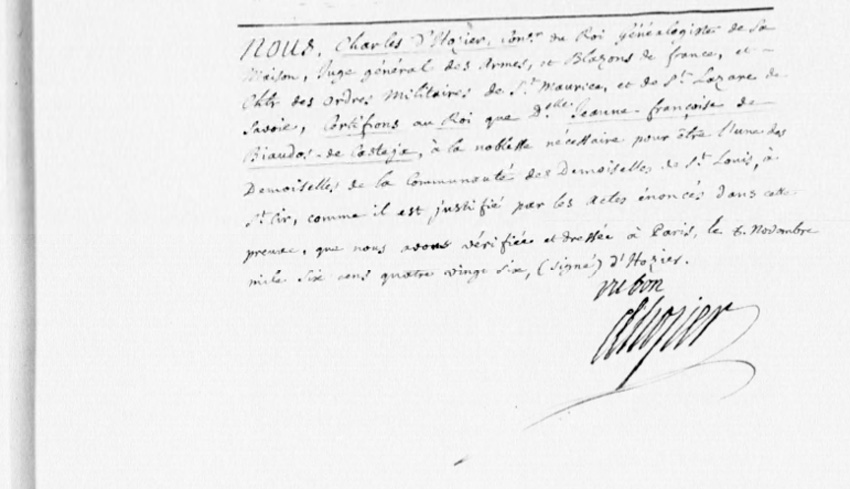 NOUS, Charles D'Hozier, Con.er du Roi généalogiste de Sa
Maison, Juge général des Armes, et Blazons de france, et -
Chlr. des Ordres Militaires de S.t Maurice, et de S.t Lazare de
Savoie, Certifions au Roi que D.elle Jeanne-françoise de
Biaudos-de Casteja, à la noblesse nécessaire pour être l'une des
Demoiselles de la Communauté des Demoiselles de S.t Louis, à
S.t Cir, comme il est justifié par les actes énoncés dans cette
preuve, que nous avons vérifiée et dressée à Paris, le 6. Novembre
mile six cens quatre vingt six, (signé) d'Hozier.
vu bon
d'hozier